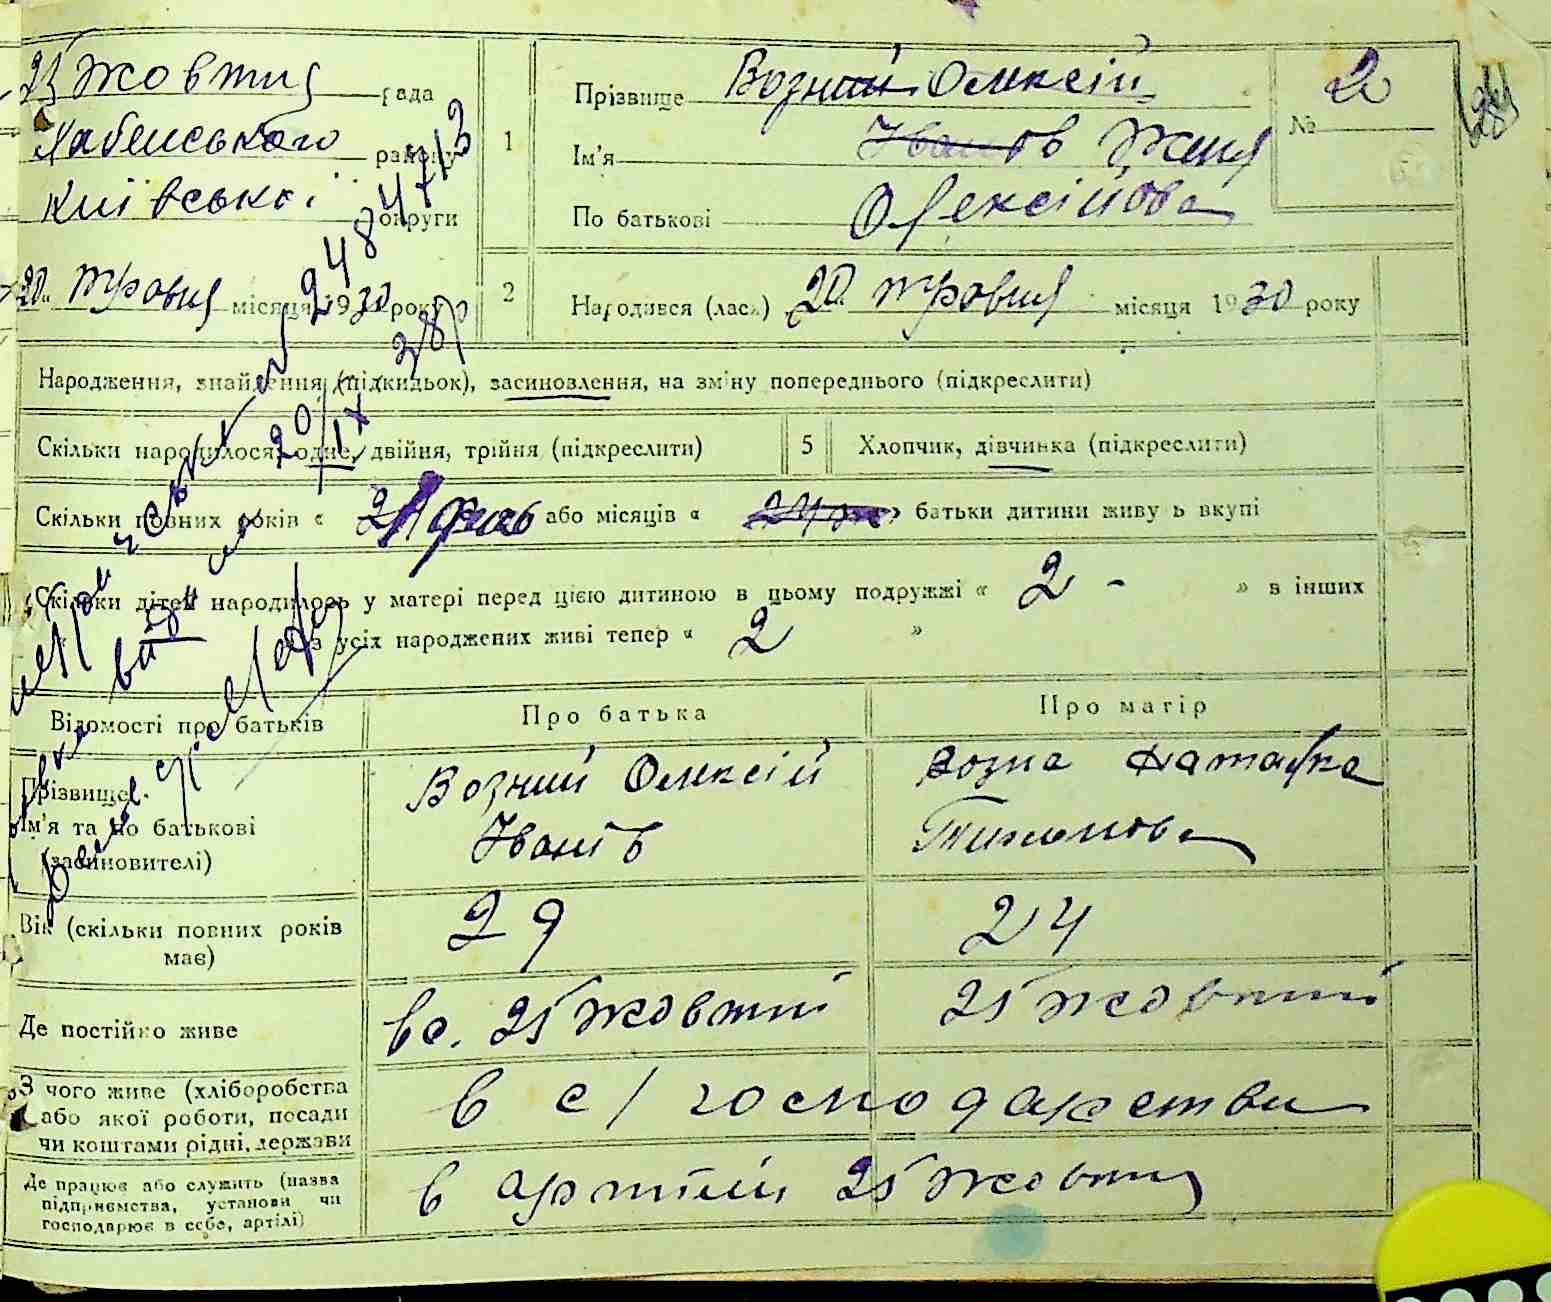 25 Жовтня рада
Хабенського району
Київської округи
20 травня місяця 1930 року
1
Прізвище Возний Олексій
Ім'я Іванов Женя
По батькові Олексійова
№ 20
284
2
Народився (лась) 20 травня місяця 1930 року
Народження, знайдення (підкидьок), засиновлення, на зміну попереднього (підкреслити)
Скільки народилося, одне, двійня, трійня (підкреслити)
5
Хлопчик, дівчинка (підкреслити)
Скільки повних років « або місяців « » батьки дитини живуть вкупі
Скільки дітей народилось у матері перед цією дитиною в цьому подружжі « 2 - » в інших
з усіх народжених живі тепер « 2 »
Відомості про батьків
Про батька
Про матір
Прізвище
Ім'я та по батькові
(засиновителі)
Возний Олексій
Іванів
Возна Наталка
Тихонова
Вік (скільки повних років
має)
29
24
Де постійно живе
в с. 25 Жовтня
25 Жовтня
З чого живе (хліборобства
або якої роботи, посади
чи коштами рідні, держави
в с/господарстви
Де працює або служить (назва
підприємства, установи чи
господарює в себе, артілі)
в артілі 25 Жовтня